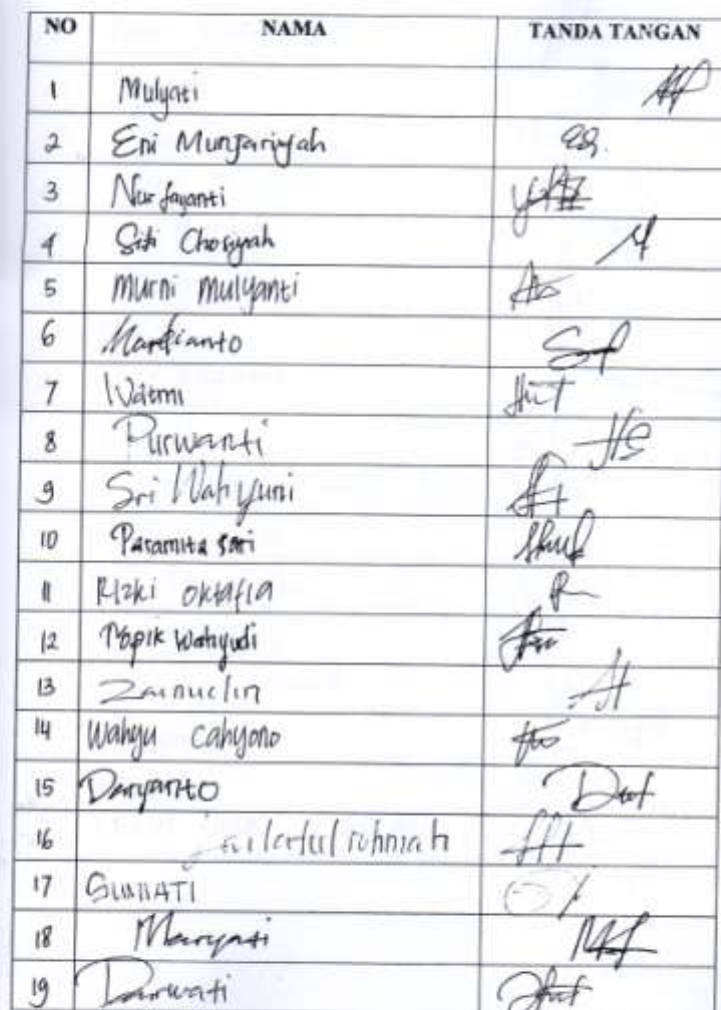 NO NAMA TANDA TANGAN
1 Mulyati
2 Eni Munjariyah
3 Nur fayanti
4 Siti Chosiyah
5 Murni Mulyanti
6 Mardianto
7 Watmi
8 Purwanti
9 Sri Wahyuni
10 Paramita Sari
11 Rizki oktafia
12 Topik Wahyudi
13 Zainudin
14 Wahyu Cahyono
15 Daryanto
16
17 SUMIATI
18 Maryati
19 Darwati